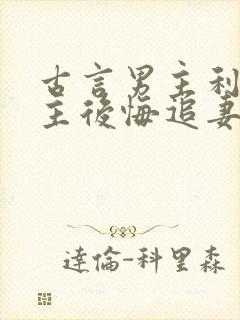 古言男主利
主後悔追妻
達倫-科里森